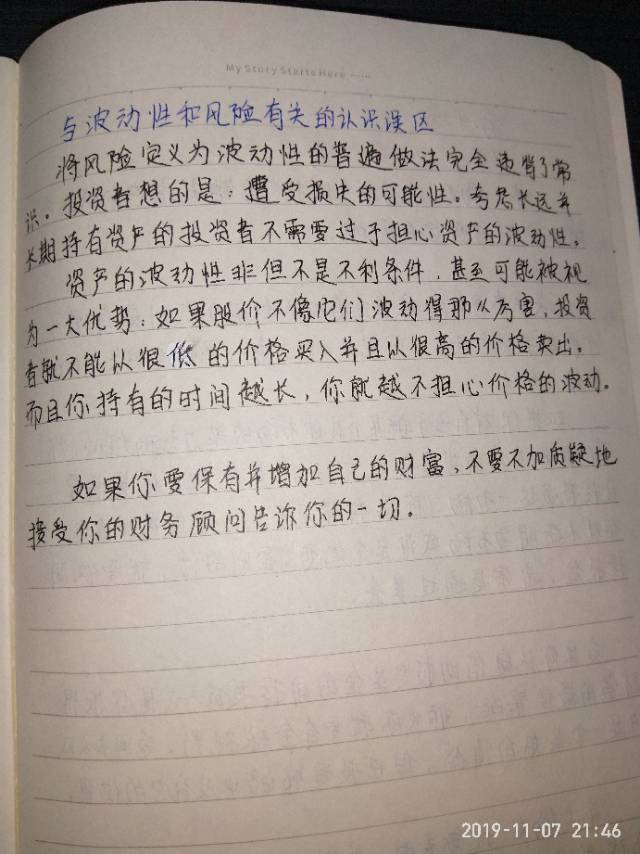 My Story Starts Here ......
与波动性和风险有关的认识误区
将风险定义为波动性的普遍做法完全违背了常
识。投资者想的是：遭受损失的可能性。考虑长远并
长期持有资产的投资者不需要过于担心资产的波动性。
资产的波动性非但不是不利条件，甚至可能被视
为一大优势：如果股价不像它们波动得那么厉害，投资
者就不能以很低的价格买入并且以很高的价格卖出。
而且你持有的时间越长，你就越不担心价格的波动。
如果你要保有并增加自己的财富，不要不加质疑地
接受你的财务顾问告诉你的一切。
2019-11-07 21:46